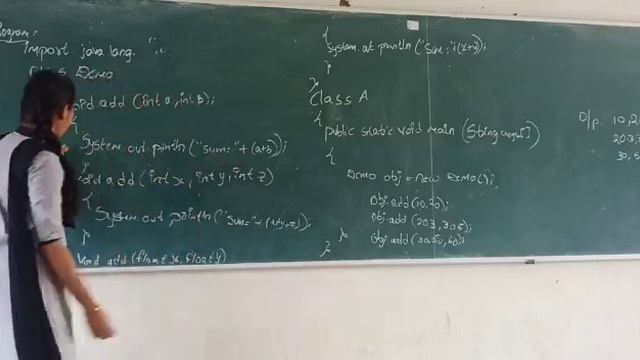 Program:
import java lang.
Class Demo
void add (int a, int b);
{
System.out.println("Sum:"+(a+b));
}
void add (int x, int y, int z)
{
System.out.println("Sum="+(x+y+z));
}
void add (float x, float y)
{
System.out println("Sum="+(x+y));
}
}
Class A
{
public static void main (String args[])
{
obj = new
Obj.add(10,20);
Obj.add (20.3, 30.5);
Obj.add(30,50,60);
}
}
O/p.